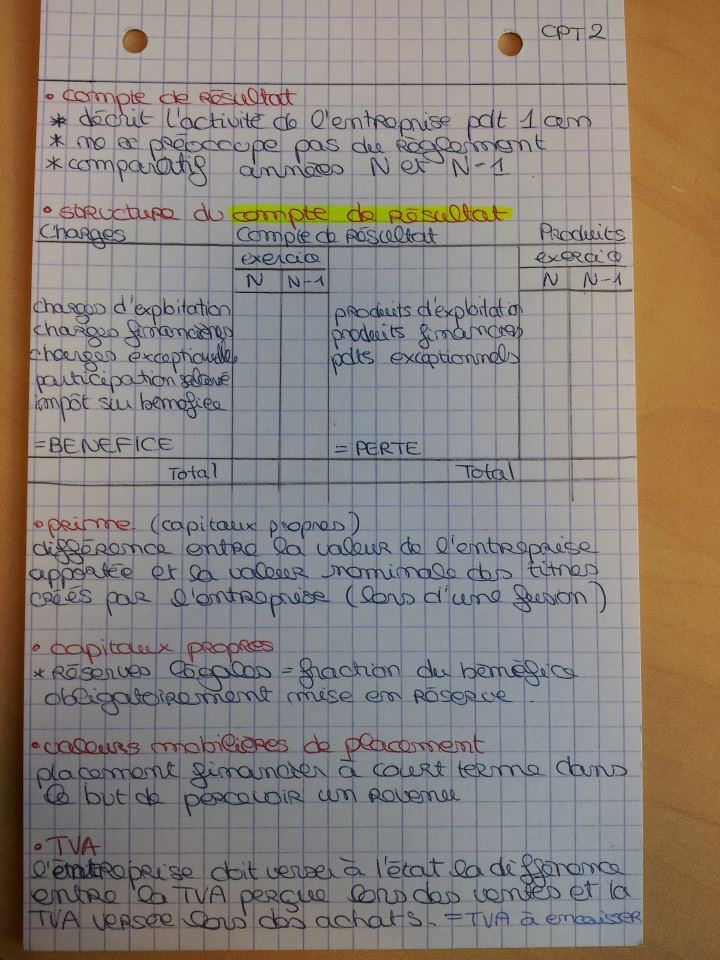 CPT 2
• compte de Résultat
* décrit l'activité de l'entreprise pdt 1 an
* ne se préoccupe pas du Règlement
* comparatif années N et N-1
• structure du compte de Résultat
Charges Compte de Résultat Produits
exercice exercice
N N-1 N N-1
charges d'exploitation produits d'exploitation
charges financières produits financiers
charges exceptionnelles pdts exceptionnels
participation salarié
impôt sur bénéfice
= BENEFICE = PERTE
Total Total
• prime (capitaux propres)
différence entre la valeur de l'entreprise
apportée et la valeur nominale des titres
créés par l'entreprise (lors d'une fusion)
• capitaux propres
* Réserves légales = fraction du bénéfice
obligatoirement mise en réserve.
• valeurs mobilières de placement
placement financier à court terme dans
le but de percevoir un revenu
• TVA
l'entreprise doit verser à l'état la différence
entre la TVA perçue lors des ventes et la
TVA versée lors des achats. = TVA à encaisser